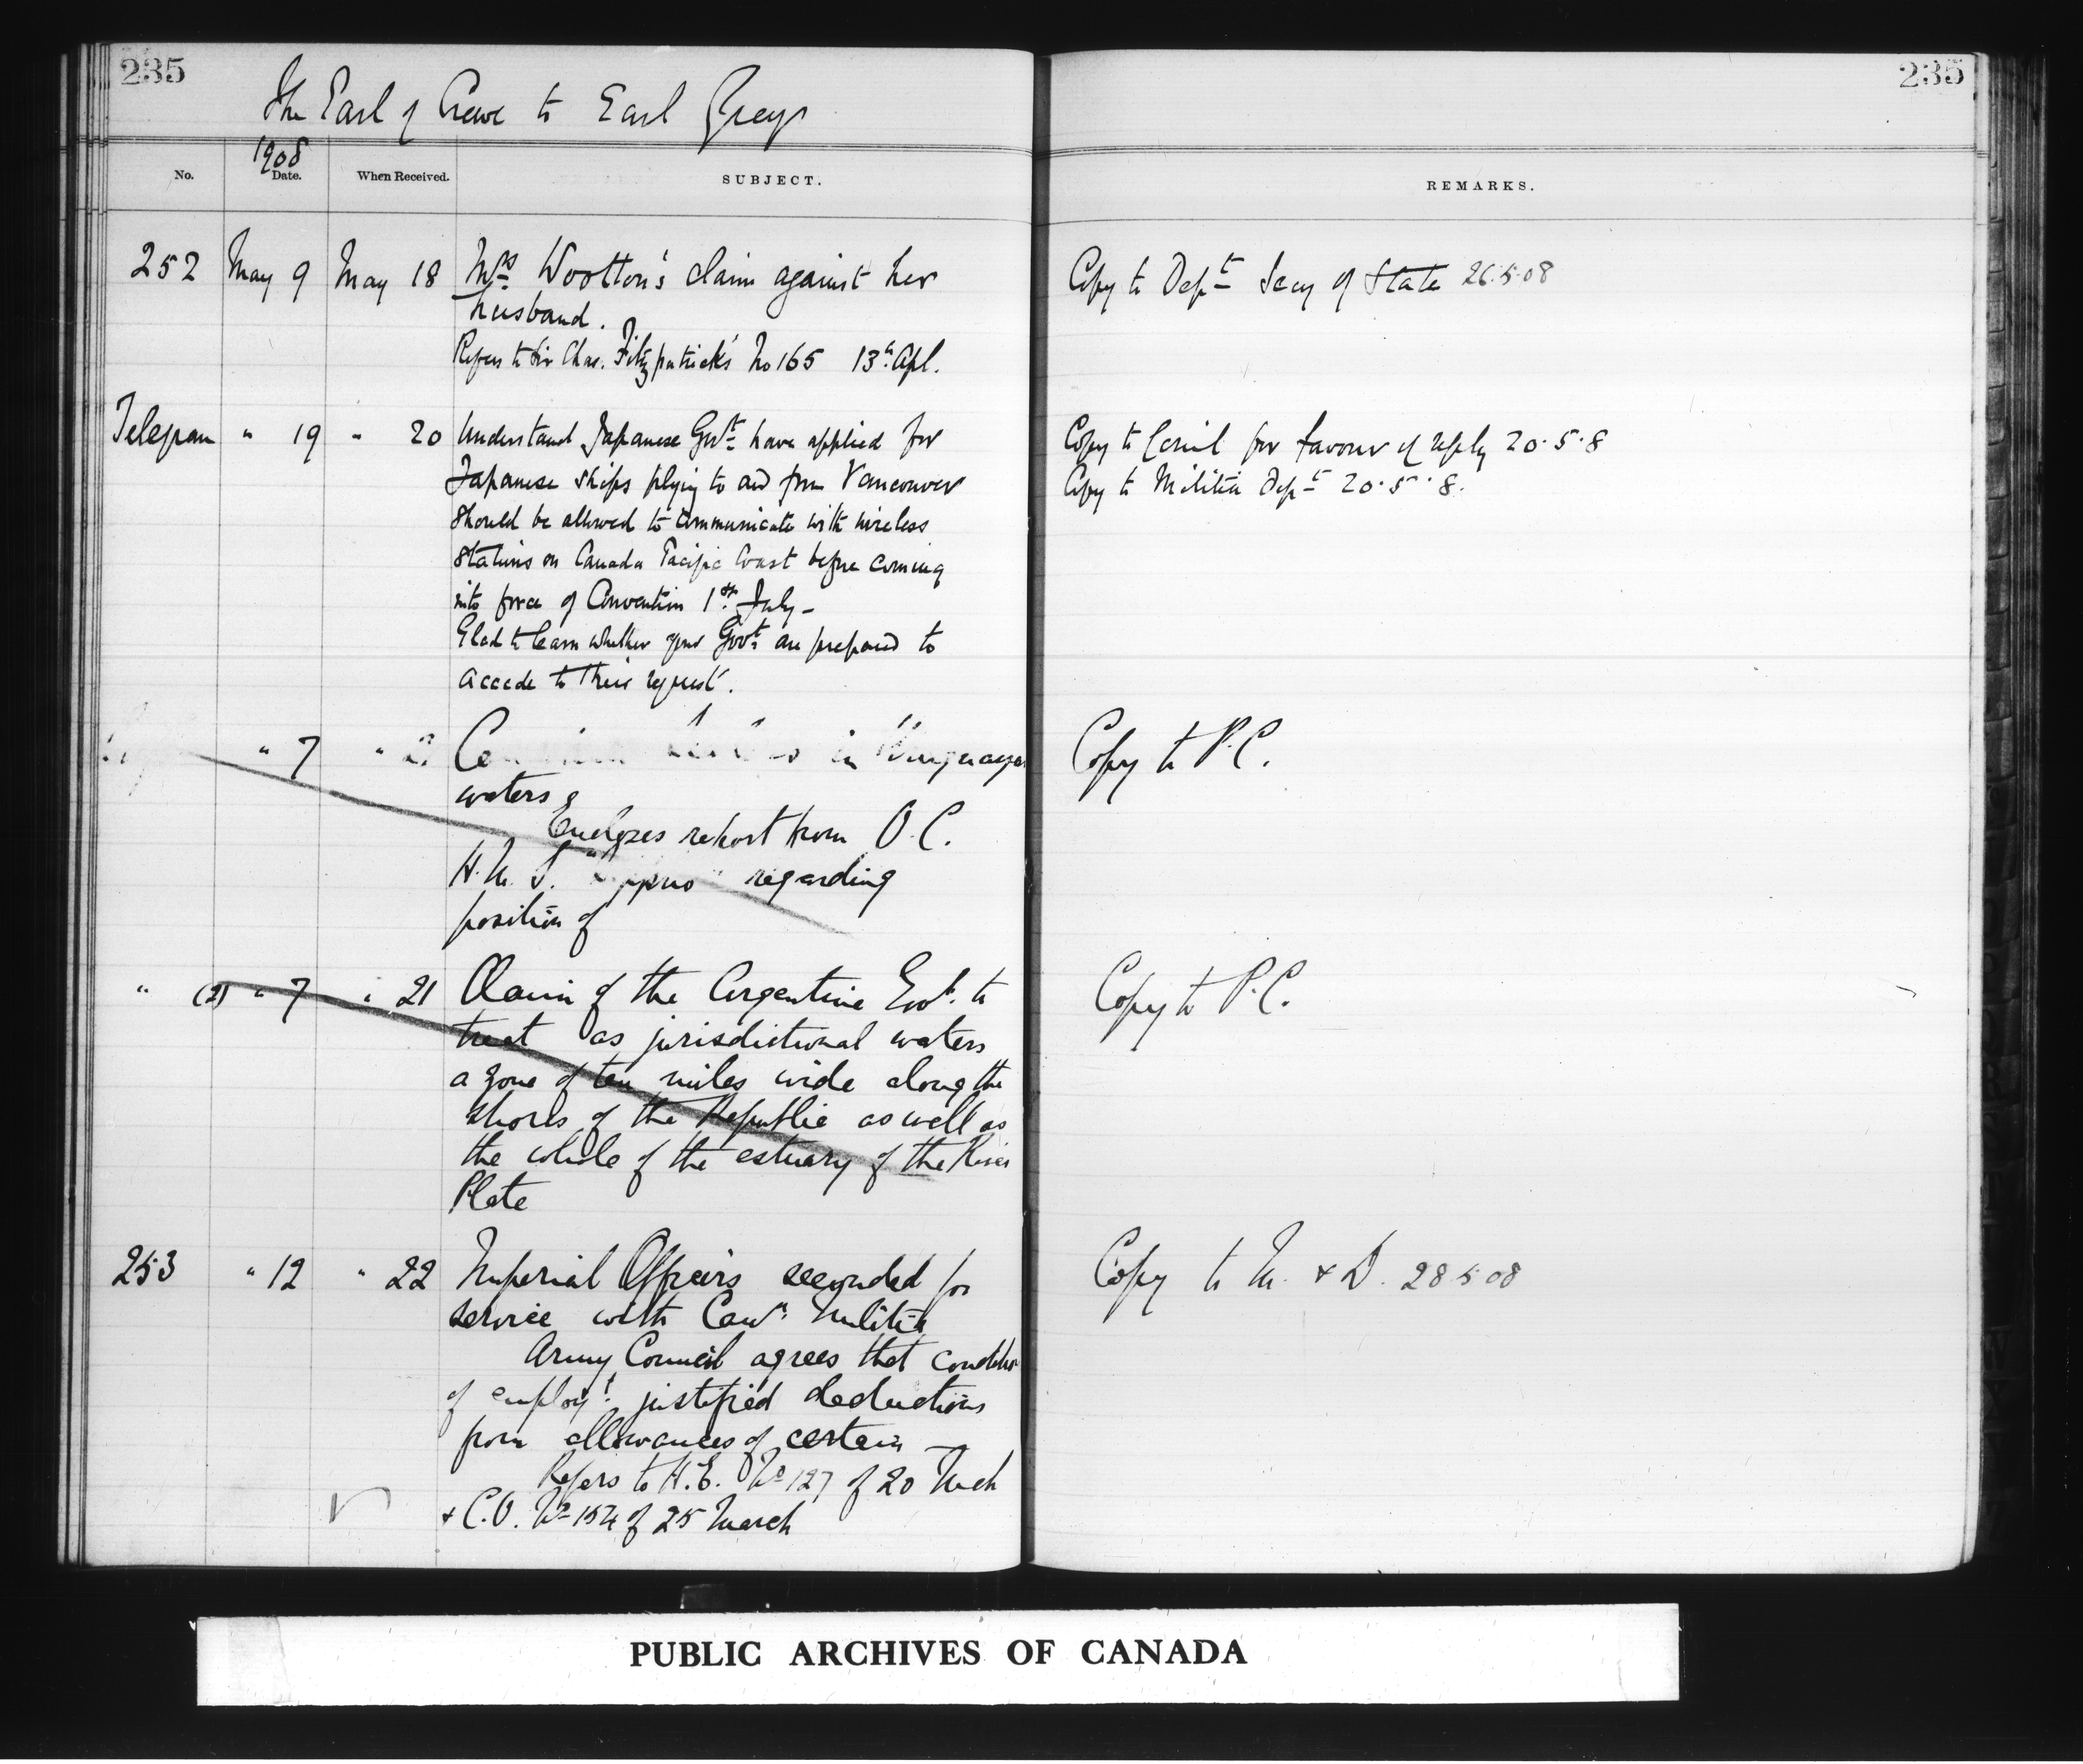 235
235
The Earl of Crewe to Earl Grey
1908
No. Date. When Received. SUBJECT.
REMARKS.
252 May 9 May 18 Mrs Wootton's claim against her
husband.
Refers to Sir Chas. Fitzpatrick's No 165 13th Apl.
Copy to Dept Secy of State 26.5.08
Telegram " 19 " 20 Understand Japanese Govt have applied for
Japanese ships plying to and from Vancouver
should be allowed to communicate with wireless
stations on Canada Pacific Coast before coming
into force of Convention 1st July -
Glad to learn whether your Govt are prepared to
accede to their request.
Copy to Council for favour of reply 20.5.8
Copy to Militia Dept 20.5.8.
" 7 " in Uruguayan
waters
Encloses report from O.C.
H.M.S. regarding
position of
Copy to P.C.
" (2) " 7 " 21 Claim of the Argentine Govt. to
treat as jurisdictional waters
a zone of ten miles wide along the
shores of the Republic as well as
the whole of the estuary of the River
Plate
Copy to P.C.
253 " 12 " 22 Imperial Officers seconded for
service with Can. Militia
Army Council agrees that condition
of employt. justified deductions
from allowances of certain
Refers to H.E. No 127 of 20 Mch
+ C.O. No 154 of 25 March
Copy to M. & D. 28 5 08
PUBLIC ARCHIVES OF CANADA